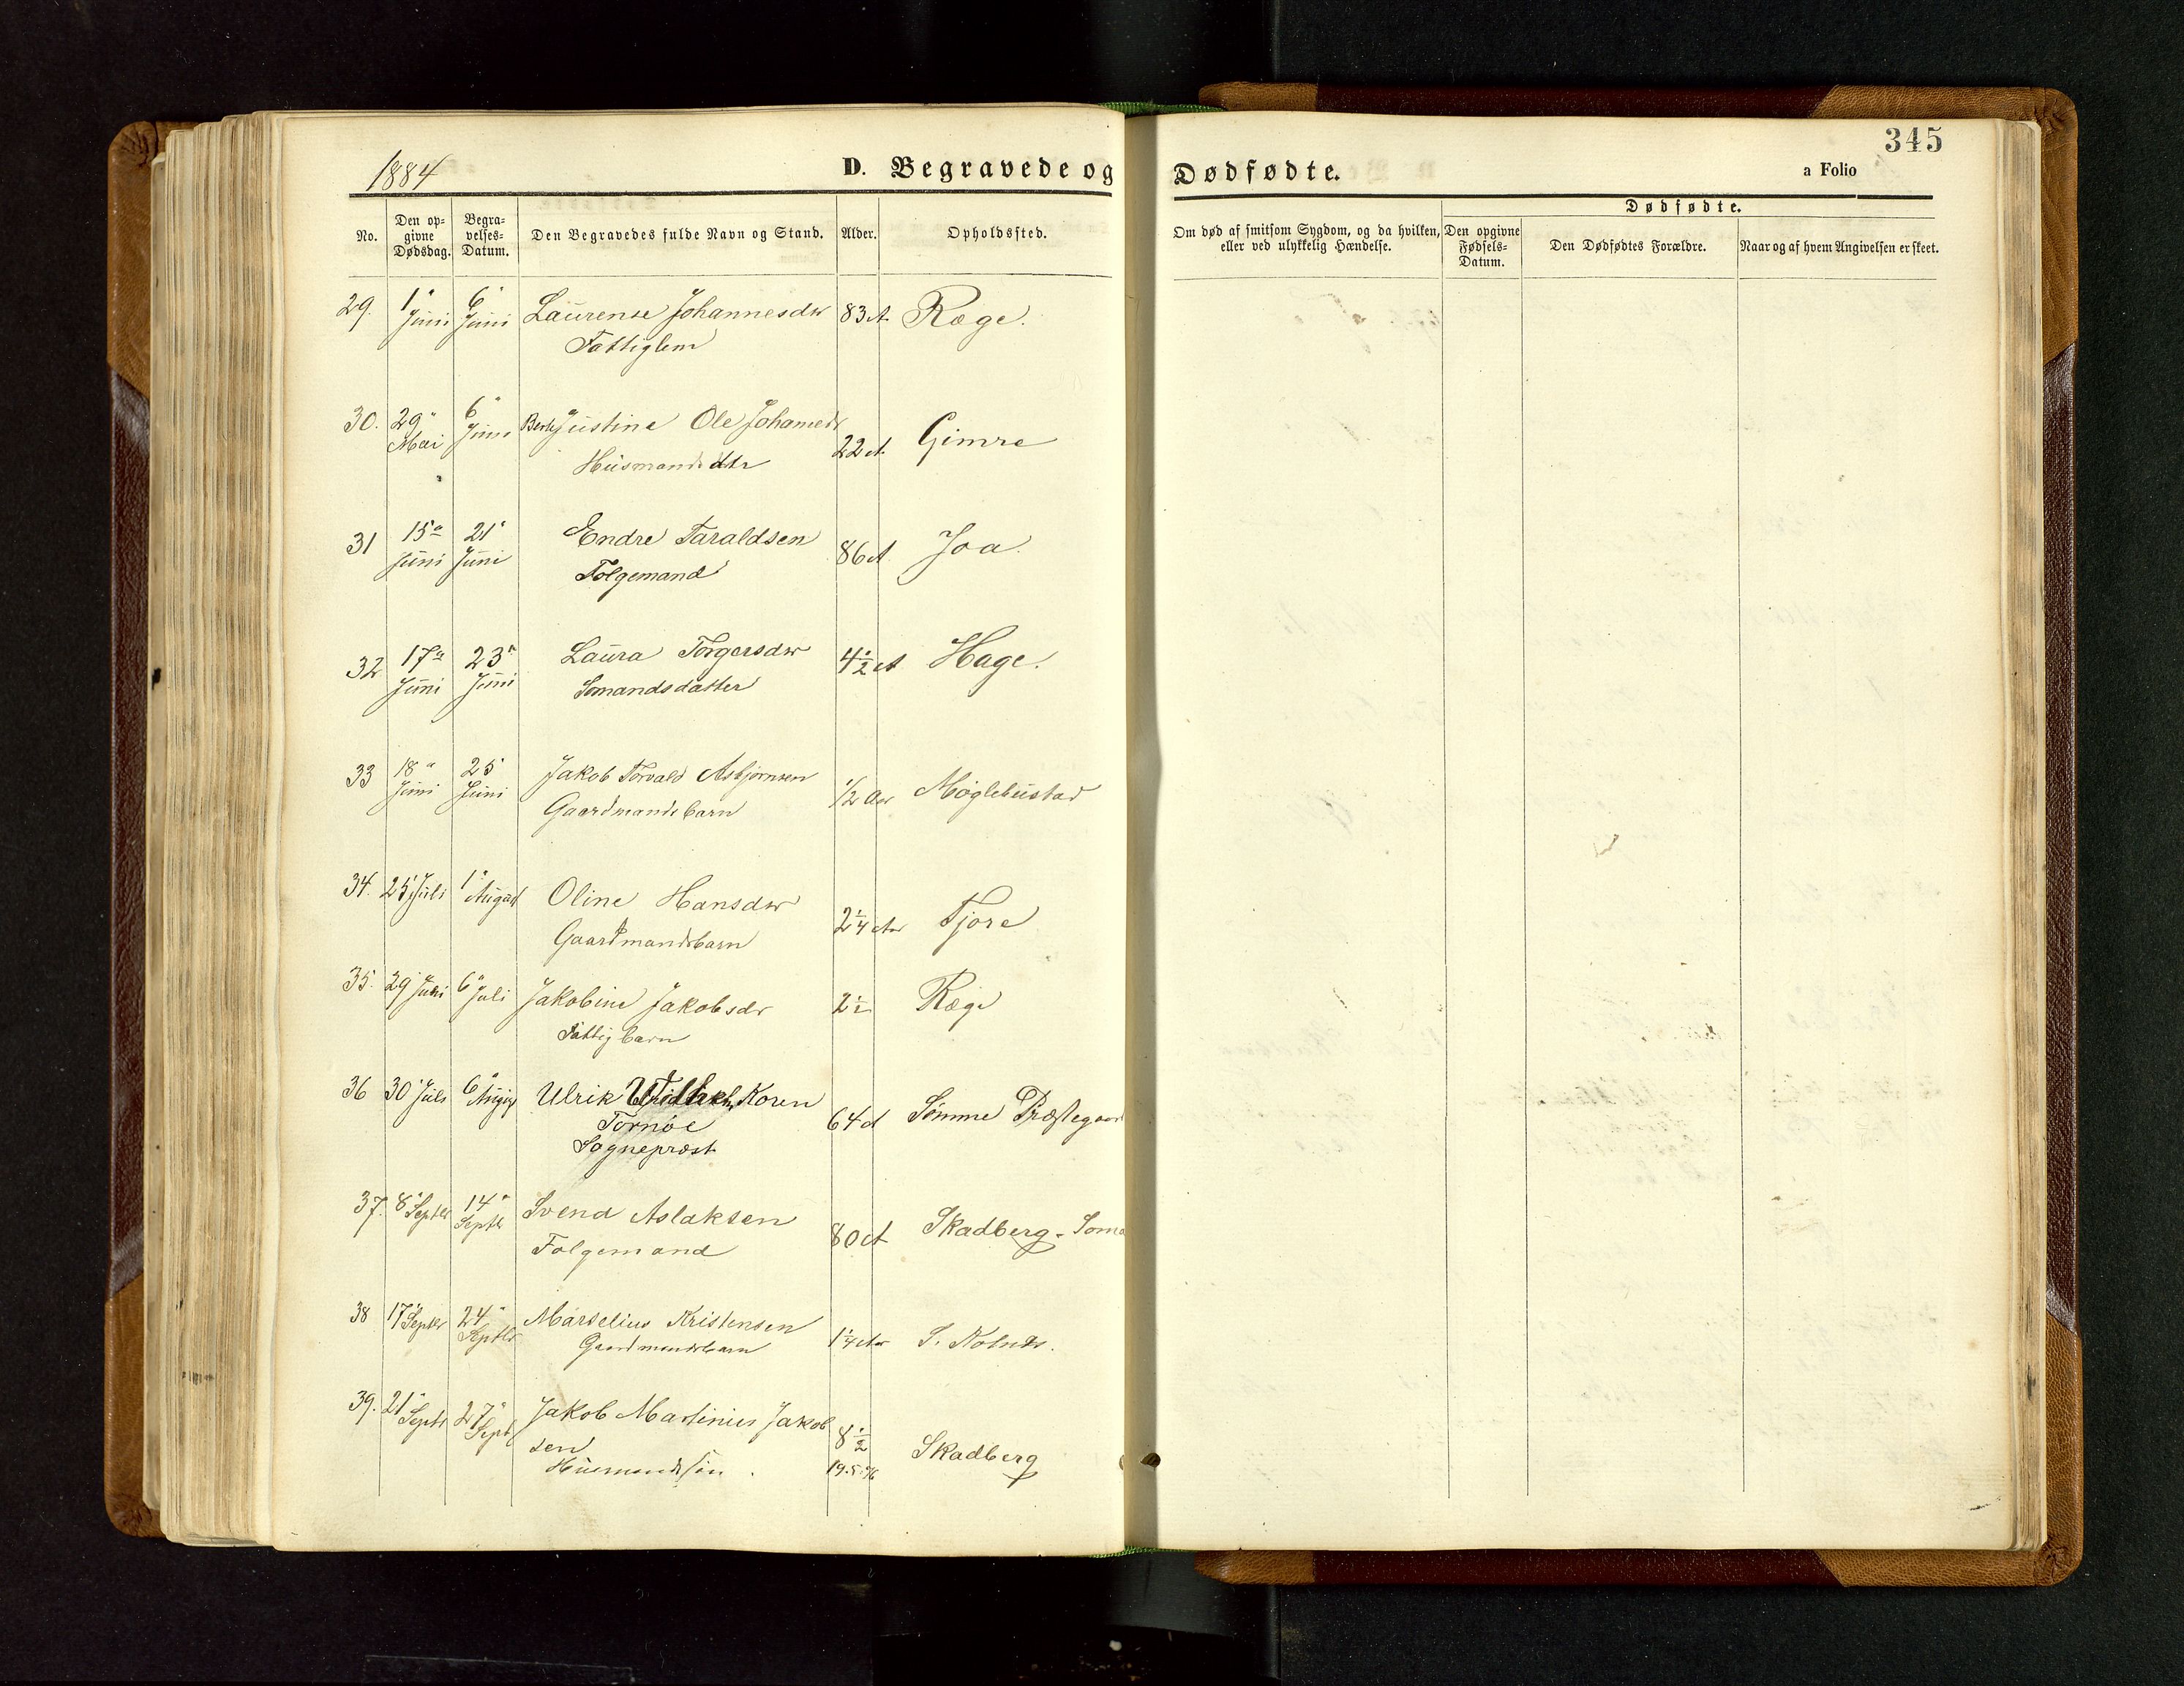 345
1884
D. Begravede og Dødfødte.
a Folio
Dødfødte.
No.
Den op-
givne
Dødsdag.
Begra-
velses-
Datum.
Den Begravedes fulde Navn og Stand.
Alder.
Opholdssted.
Om død af smitsom Sygdom, og da hvilken,
eller ved ulykkelig Hændelse.
Den opgivne
Fødsels-
Datum.
Den Dødfødtes Forældre.
Naar og af hvem Angivelsen er skeet.
29. 1" Juni 6" Juni Laurense Johannesdtr 83 A Ræge.
Fattiglem
30. 29" Mai 6" Juni Justine Ole Johannedr 22 A. Gimre
Husmandsdtr
31 15" Juni 21" Juni Endre Taraldsen 86 A Joa.
Folgemand
32 17" Juni 23" Juni Laura Torgersdtr 4 1/2 A Hage.
Somandsdatter
33 18" Juni 25" Juni Jakob Torvald Asbjornsen 1/2 Aar Møglebustad
Gaardmandsbarn
34. 25 Juli 1" August Oline Hansdtr 2 1/4 Aar Tjore
Gaardmandsbarn
35. 29 Juni 6" Juli Jakobine Jakobsdr 2 1/2 Ræge
Fattigbarn
36 30 Juli 6" August Ulrik Koren 64 A Sømme Præstegaar
Tornøe
Sogneprest
37. 8" Septbr 14" Septbr Svend Aslaksen 80 A Skadberg - Soma
Folgemand
38 17" Septbr 24" Septbr Marselius Kristensen 1 1/4 Aar S. Kolnes.
Gaardmandsbarn
39. 21" Septbr 27" Septbr Jakob Martinius Jakob 8 1/2 Skadberg
sen
Husmandssøn. 19.5.76